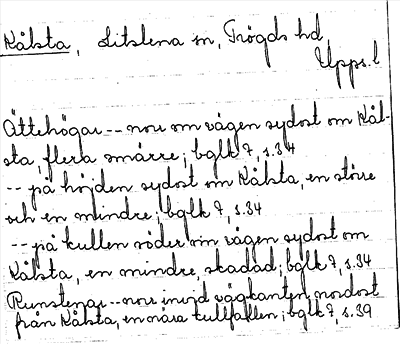 Kålsta, Litslena sn, Trögds hd,
Upps.l
Ättehögar -- norr om vägen sydost om Kål-
sta, flera smärre; bglk 7, s.34
-- på höjden sydost om Kålsta, en större
och en mindre; bglk 7, s.34
-- på kullen söder om vägen sydost om
Kålsta, en mindre, skadad; bglk 7, s.34
Runstenar -- norr invid vägkanten nordost
från Kålsta, en nära kullfallen; bglk 7, s.39